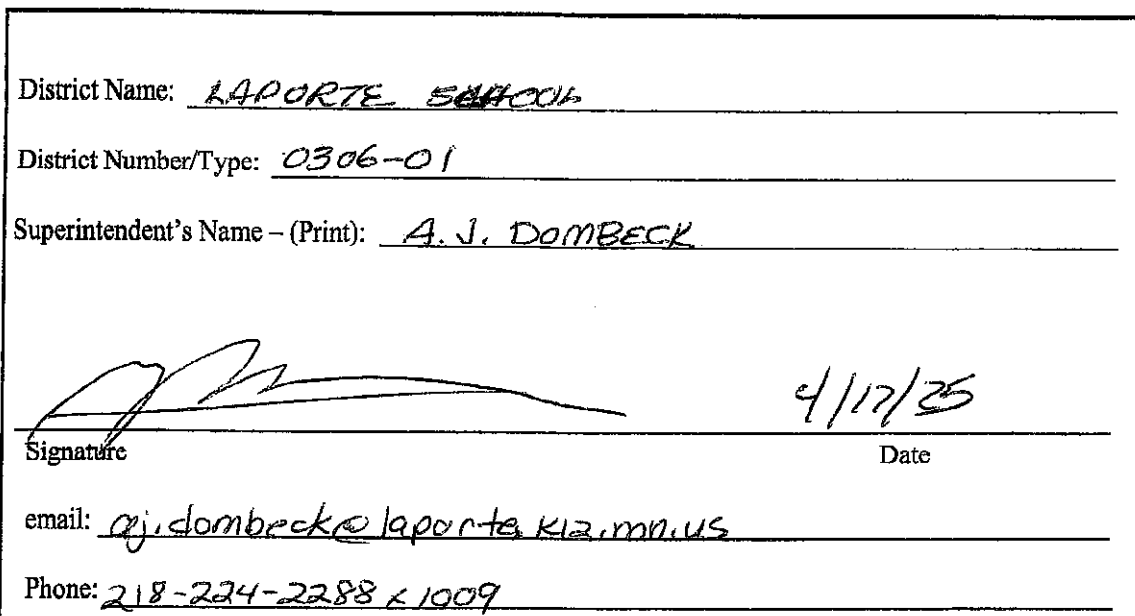 District Name: LAPORTE SCHOOL
District Number/Type: 0306-01
Superintendent's Name – (Print): A. J. DOMBECK
4/17/25
Signature Date
email: aj.dombeck@laporte.k12.mn.us
Phone: 218-224-2288 x 1009